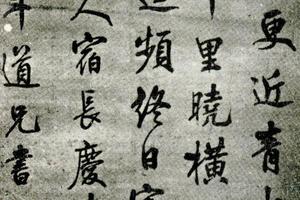 更近青
里曉橫
頻終日
人宿長慶
年道兄書